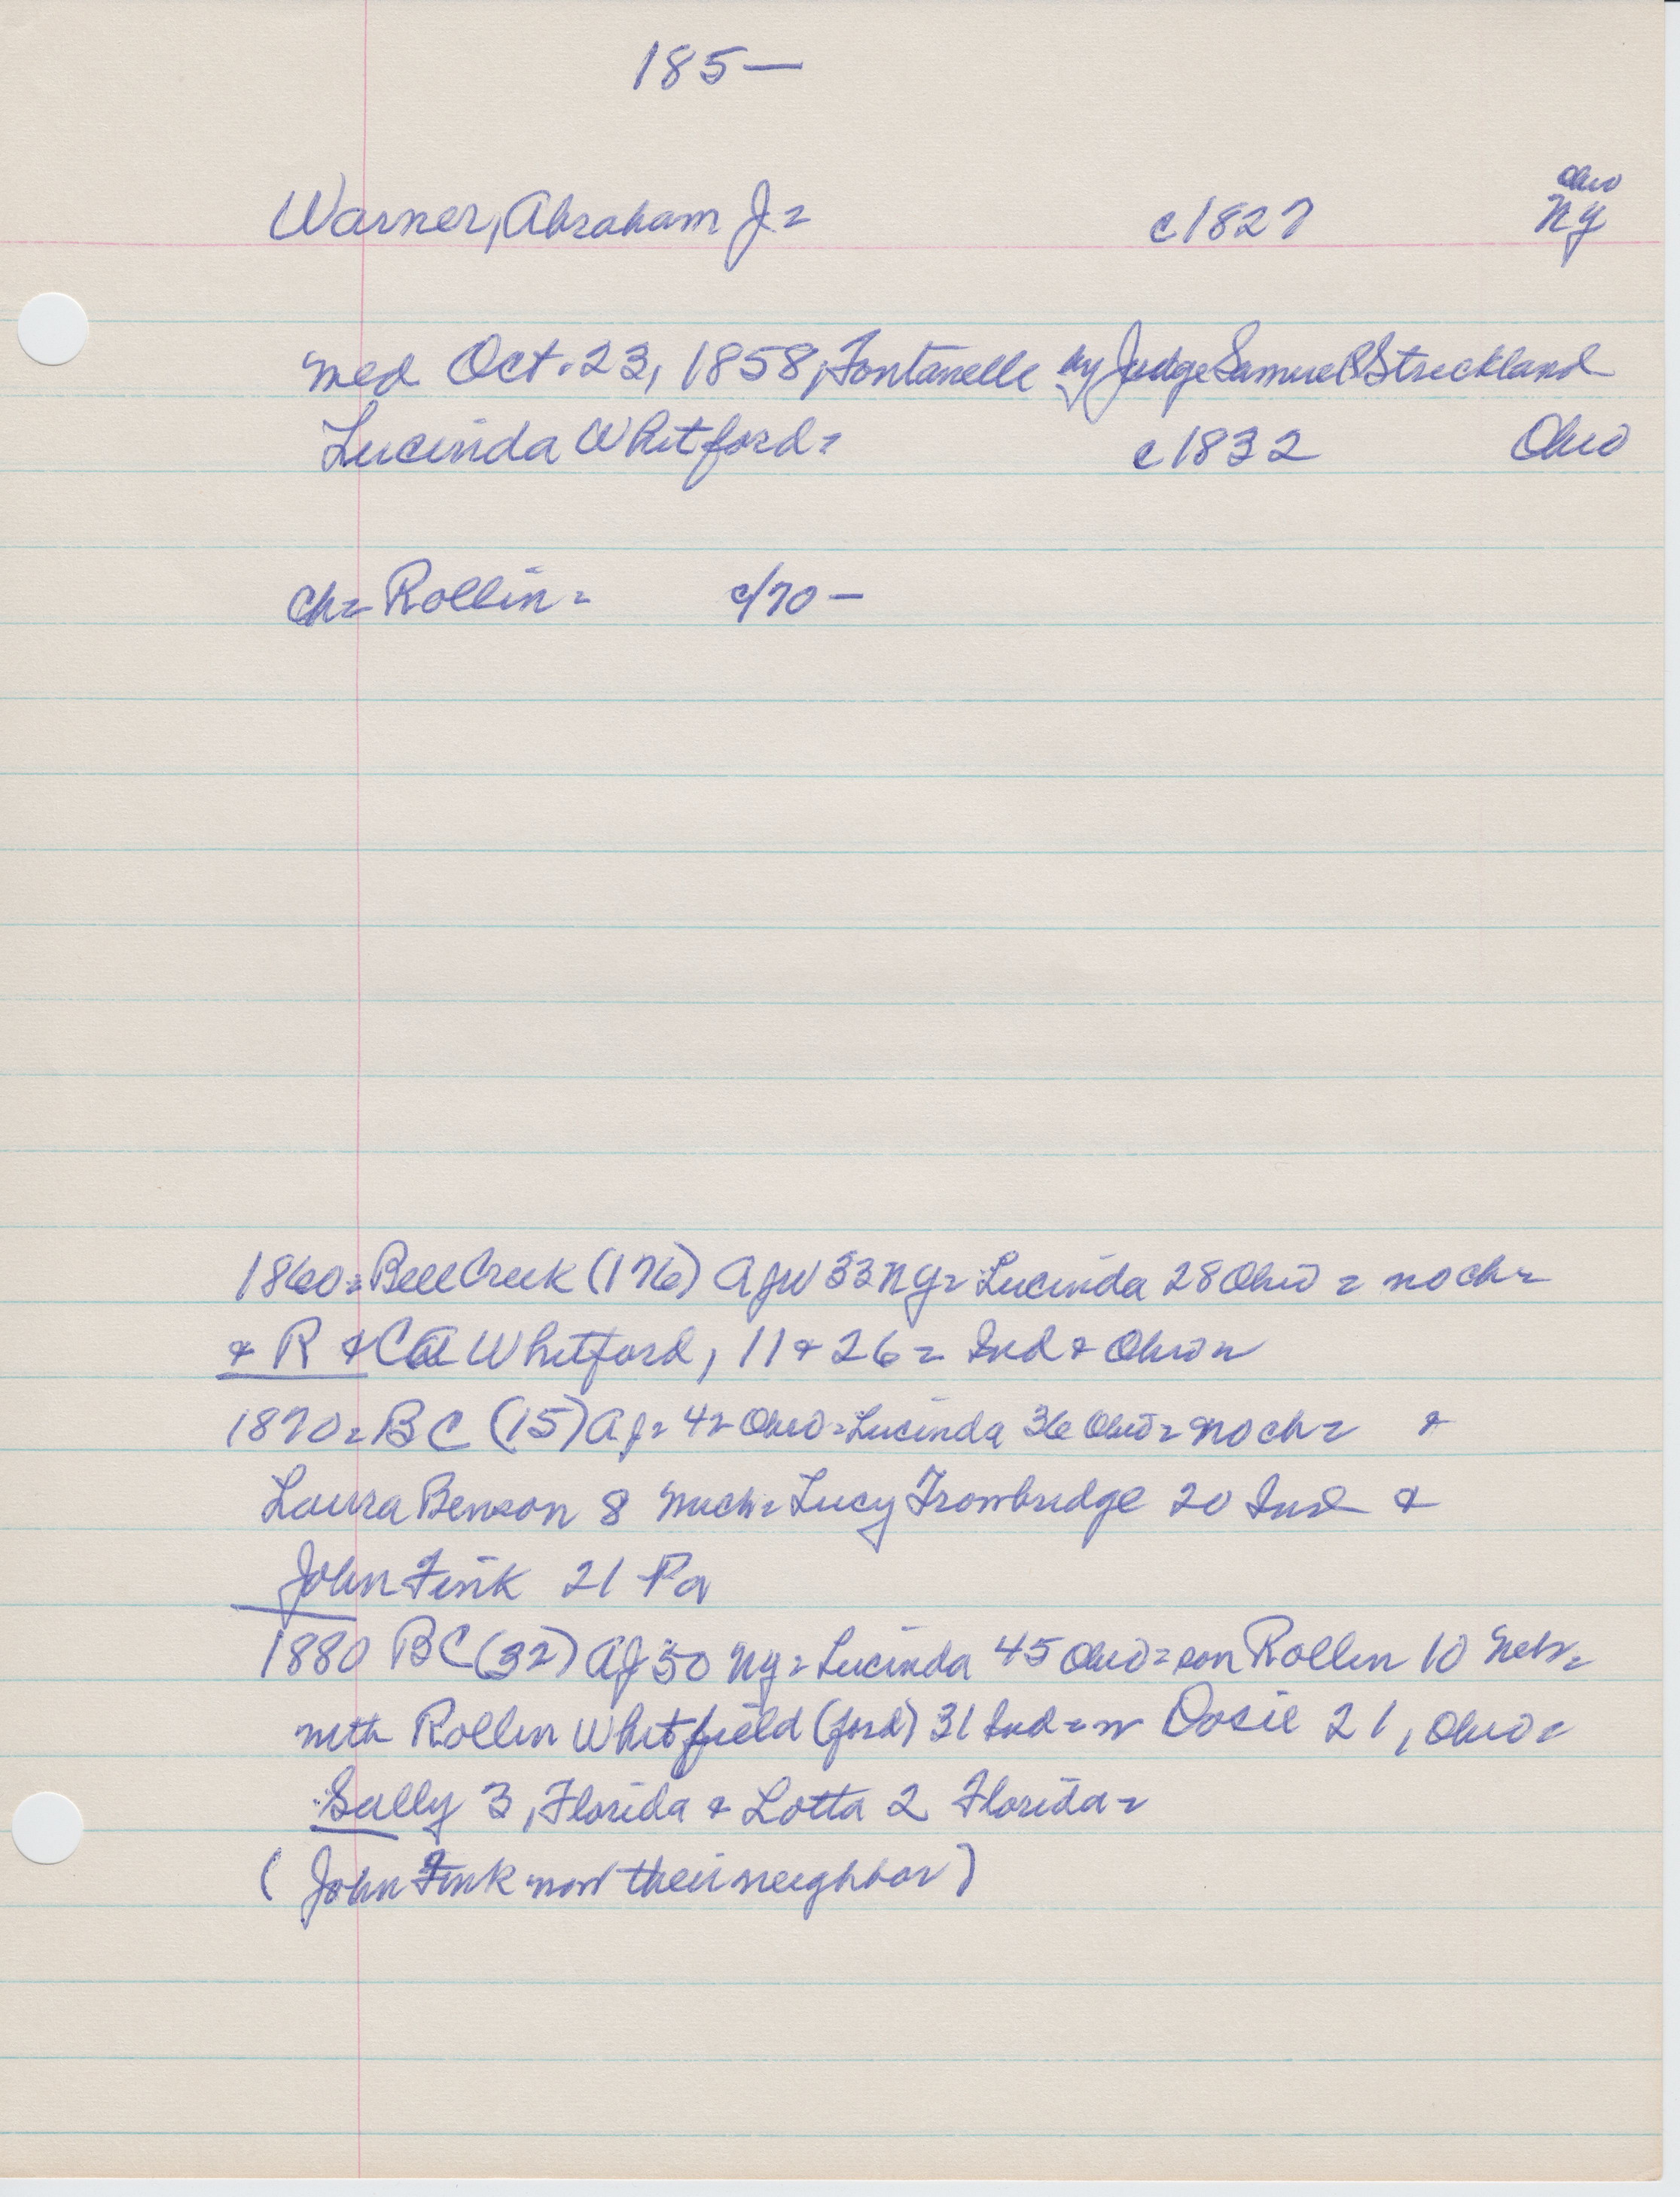 185—
Ohio
Warner, Abraham J= c1827 NY
med Oct. 23, 1858, Fontanelle by Judge Samuel Strickland
Lucinda Whitford= c1832 Ohio
ch= Rollin= c/70—
1860= Bell Creek (176) AJW 33 NY= Lucinda 28 Ohio = no ch=
& R & CA Whitford, 11 & 26 = Ind & Ohio=
1870= BC (15) AJ= 42 Ohio= Lucinda 36 Ohio= no ch= &
Laura Benson 8 Mich= Lucy Trombridge 20 Ind &
John Fink 21 Pa
1880 BC (32) AJ 50 NY= Lucinda 45 Ohio= son Rollin 10 Neb=
with Rollin Whitfield (ford) 31 Ind= w Dosie 21, Ohio=
Sally 3, Florida & Lotta 2 Florida=
(John Fink now their neighbor)